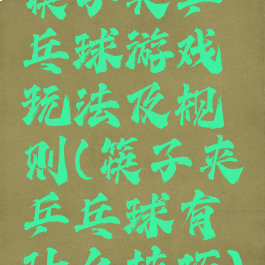 筷子夹乒
乓球游戏
玩法及规
则(筷子夹
乒乓球有
什么技巧)